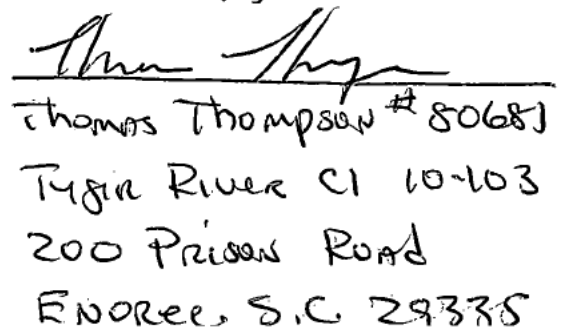 Thomas Thompson
Thomas Thompson # 80681
Tygir River CI 10-103
200 Prison Road
Enoree, S.C. 29335